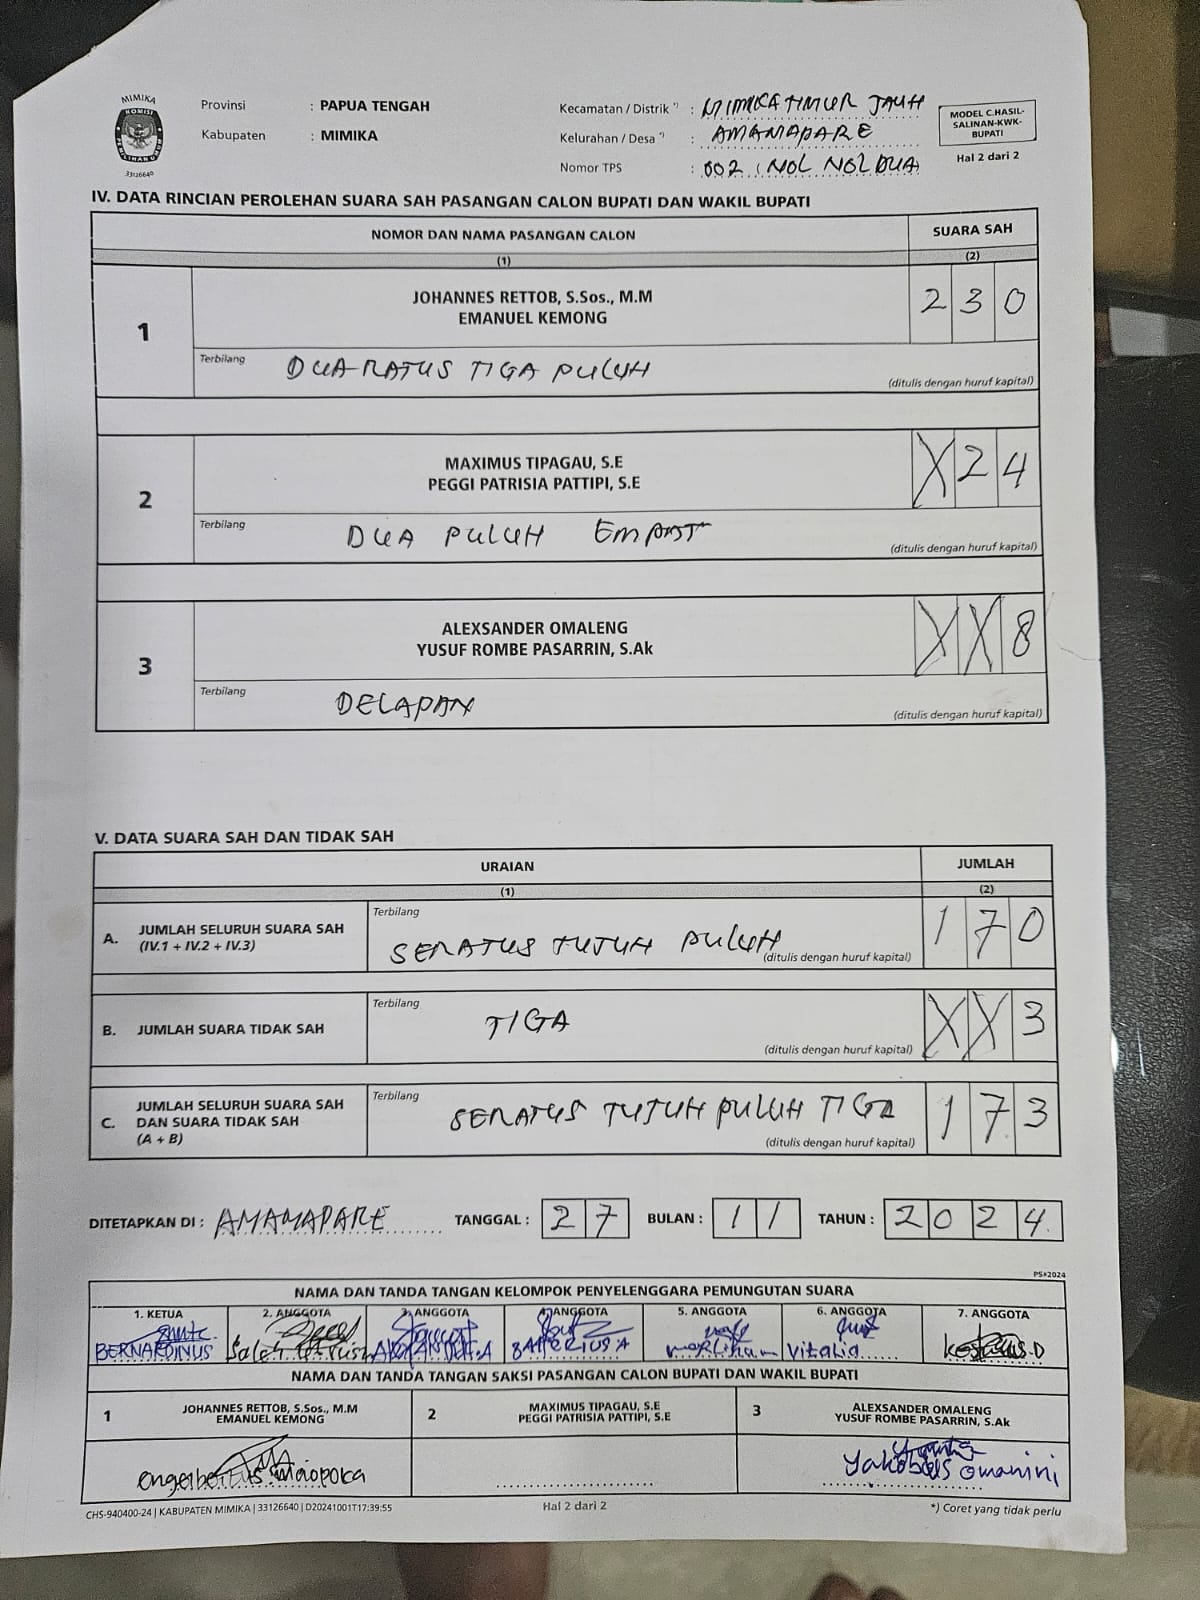 MIMIKA
KOMISI
PEMILIHAN UMUM
33126640
Provinsi : PAPUA TENGAH
Kabupaten : MIMIKA
Kecamatan / Distrik *) : MIMIKA TIMUR JAUH
Kelurahan / Desa *) : AMAMAPARE
Nomor TPS : 002 (NOL NOL DUA
MODEL C.HASIL-
SALINAN-KWK-
BUPATI
Hal 2 dari 2
IV. DATA RINCIAN PEROLEHAN SUARA SAH PASANGAN CALON BUPATI DAN WAKIL BUPATI
NOMOR DAN NAMA PASANGAN CALON SUARA SAH
(1) (2)
1 JOHANNES RETTOB, S.Sos., M.M
EMANUEL KEMONG 2 3 0
Terbilang DUA RATUS TIGA PULUH
(ditulis dengan huruf kapital)
2 MAXIMUS TIPAGAU, S.E
PEGGI PATRISIA PATTIPI, S.E X 2 4
Terbilang DUA PULUH EMPAT
(ditulis dengan huruf kapital)
3 ALEXSANDER OMALENG
YUSUF ROMBE PASARRIN, S.Ak X X 8
Terbilang DELAPAN
(ditulis dengan huruf kapital)
V. DATA SUARA SAH DAN TIDAK SAH
URAIAN JUMLAH
(1) (2)
A. JUMLAH SELURUH SUARA SAH
(IV.1 + IV.2 + IV.3)
Terbilang SERATUS TUJUH PULUH 1 7 0
(ditulis dengan huruf kapital)
B. JUMLAH SUARA TIDAK SAH
Terbilang TIGA X X 3
(ditulis dengan huruf kapital)
C. JUMLAH SELURUH SUARA SAH
DAN SUARA TIDAK SAH
(A + B)
Terbilang SERATUS TUJUH PULUH TIGA 1 7 3
(ditulis dengan huruf kapital)
DITETAPKAN DI : AMAMAPARE TANGGAL : 2 7 BULAN : 1 1 TAHUN : 2 0 2 4
PS#2024
NAMA DAN TANDA TANGAN KELOMPOK PENYELENGGARA PEMUNGUTAN SUARA
1. KETUA 2. ANGGOTA 3. ANGGOTA 4. ANGGOTA 5. ANGGOTA 6. ANGGOTA 7. ANGGOTA
BERNARDINUS Vitalia
NAMA DAN TANDA TANGAN SAKSI PASANGAN CALON BUPATI DAN WAKIL BUPATI
1 JOHANNES RETTOB, S.Sos., M.M
EMANUEL KEMONG
2 MAXIMUS TIPAGAU, S.E
PEGGI PATRISIA PATTIPI, S.E
3 ALEXSANDER OMALENG
YUSUF ROMBE PASARRIN, S.Ak
Omanini
CHS-940400-24 | KABUPATEN MIMIKA | 33126640 | D20241001T17:39:55 Hal 2 dari 2 *) Coret yang tidak perlu